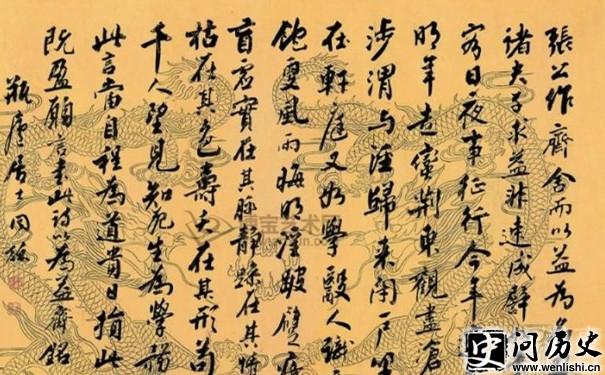 張公作齊舍而以益為名
諸夫子求益非速成譬
客日夜事征行今年
明年走蠻荊東觀盡滄
涉渭與涇歸來閉戶
在軒庭又如學醫人識
飽更風雨晦明淫跛躄
盲虛實在其脉靜躁在其情
枯在其色壽夭在其形苟
千人望見知死生為學務
此言當自程為道貴日損此
既盈願言書此詩以為益齋銘
瓶廬居士同龢
问历史
www.wenlishi.cn